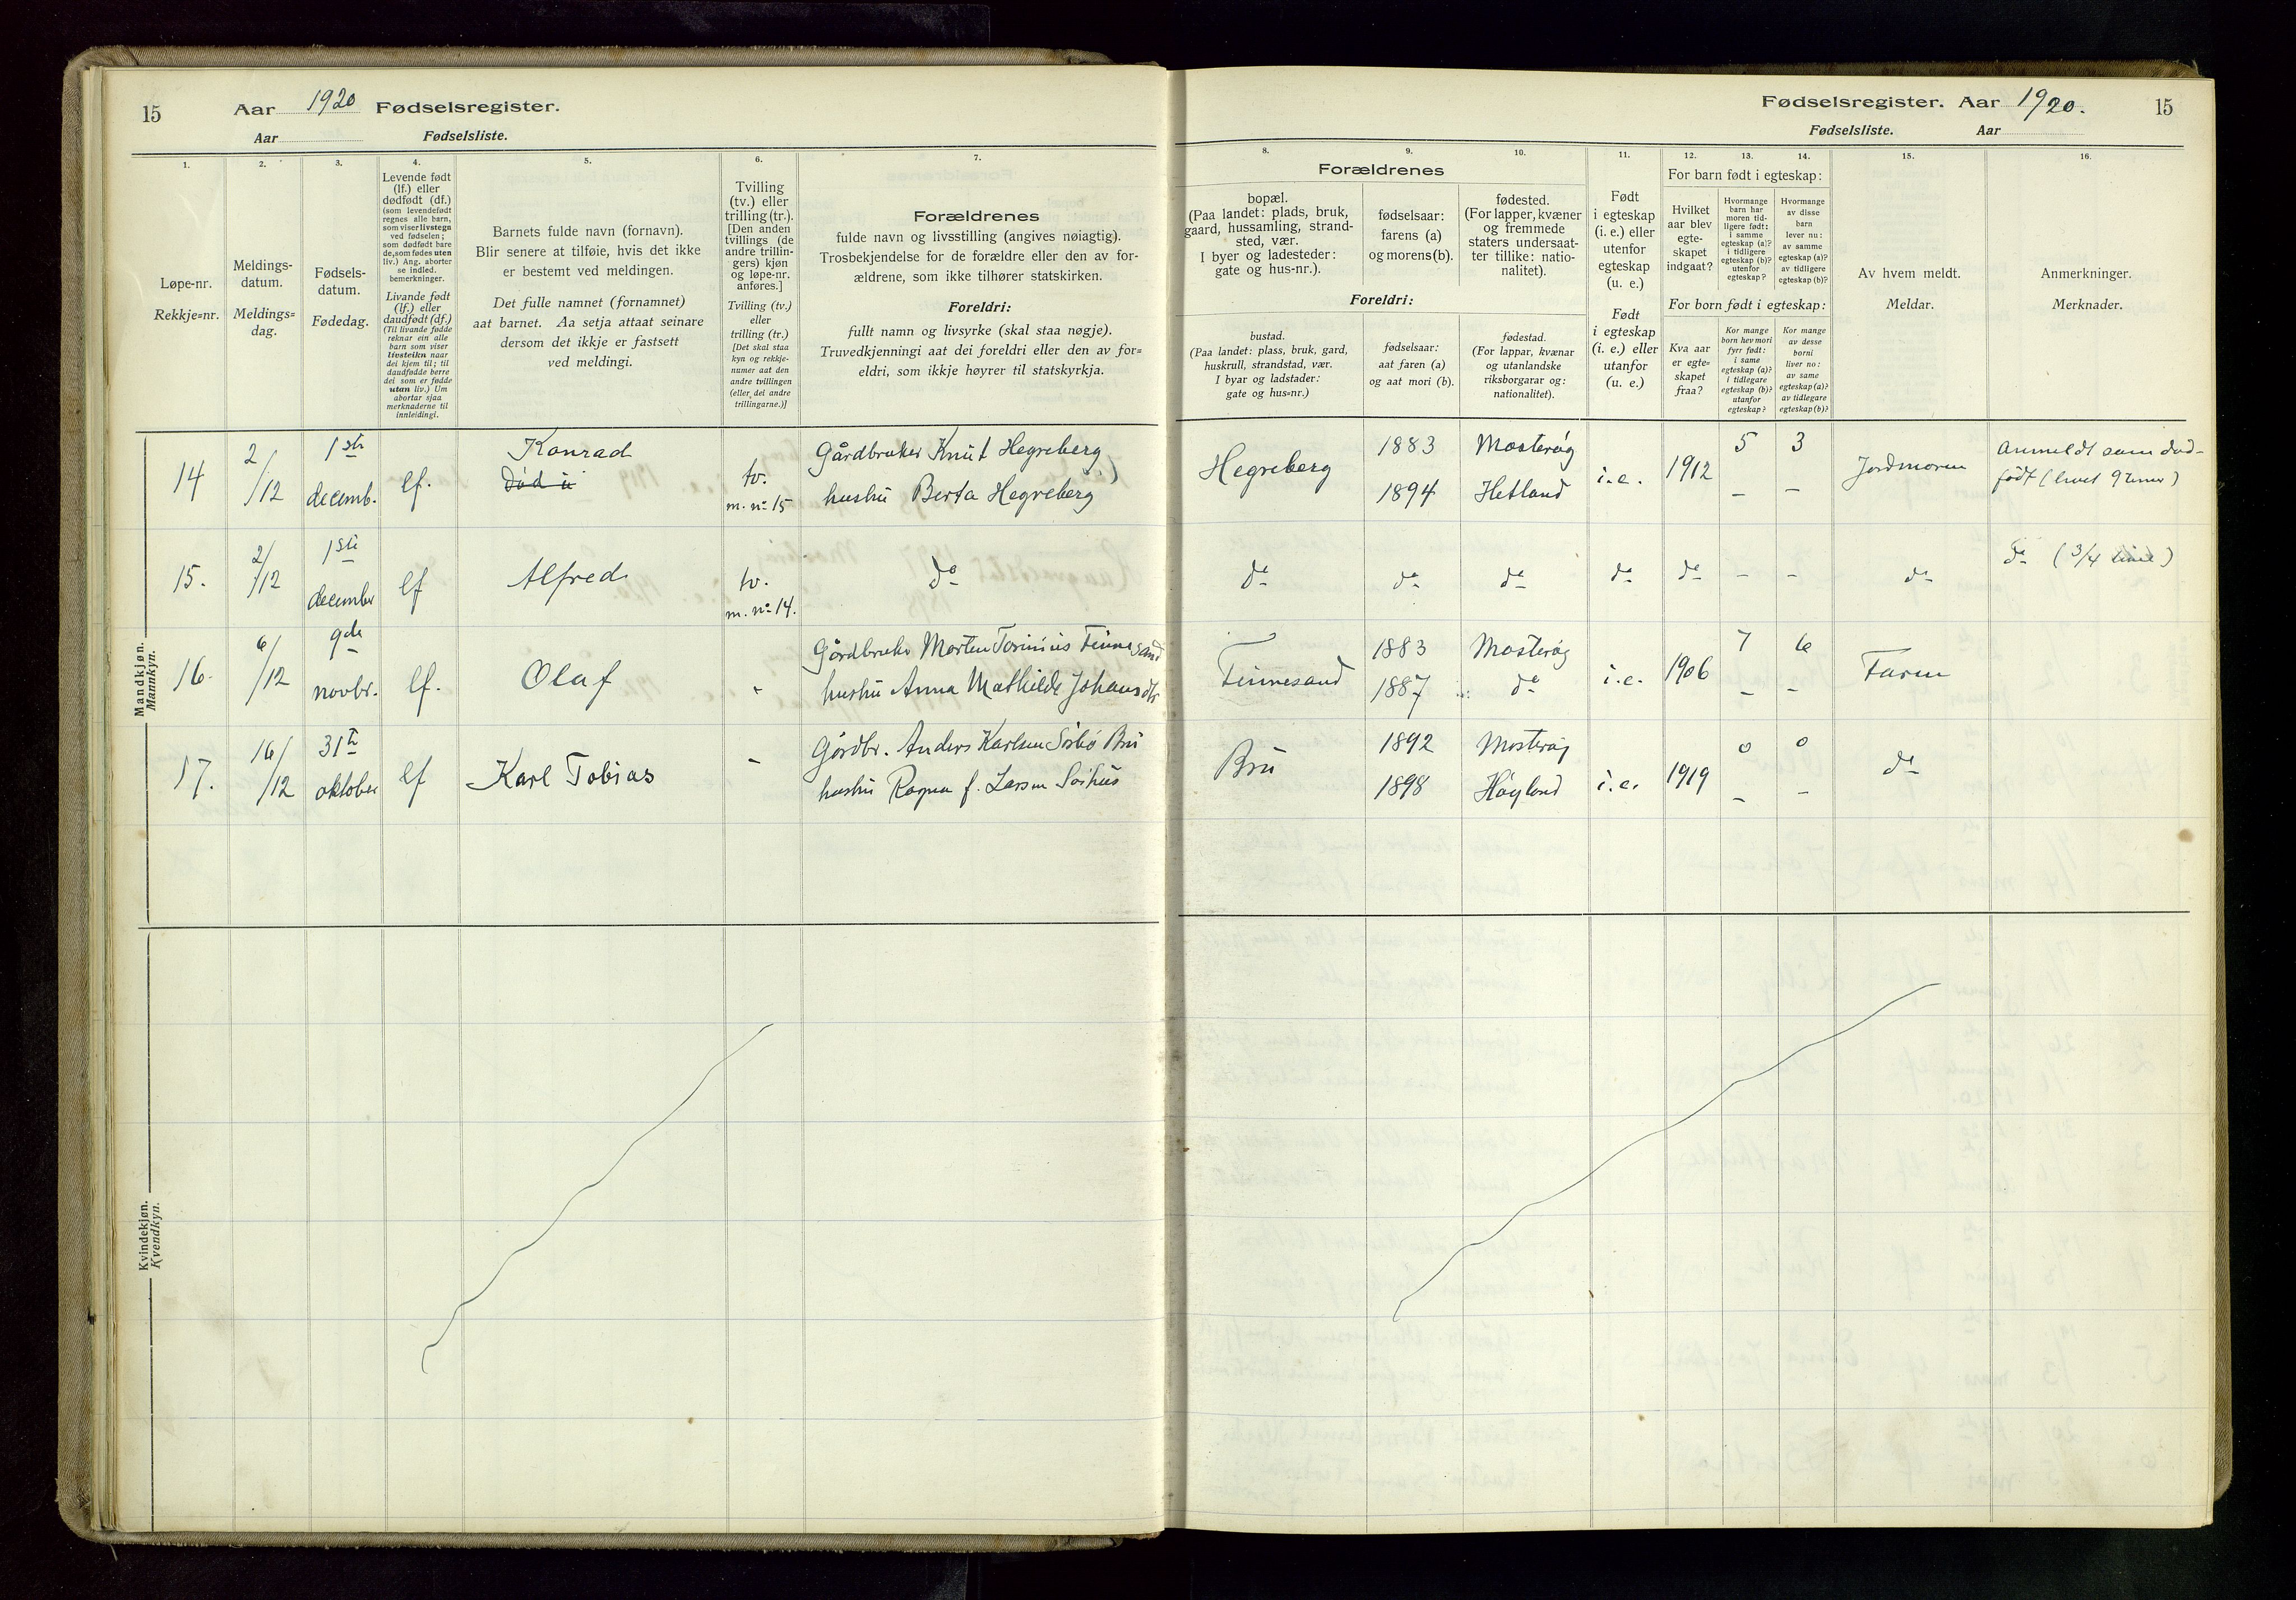 15
Aar 1920 Fødselsregister.
Aar Fødselsliste.
Fødselsregister. Aar 1920.
15
Fødselsliste. Aar
1.
Løpe-nr.
Rekkje=nr.
2.
Meldings-
datum.
Meldings=
dag.
3.
Fødsels-
datum.
Fødedag.
4.
Levende født
(lf.) eller
dødfødt (df.)
(som levendefødt
regnes alle barn,
som viser livstegn
ved fødselen;
som dødfødt bare
de, som fødes uten
liv.) Ang. aborter
se indled.
bemerkninger.
Livande født
(lf.) eller
daudfødt (df.)
(Til livande fødde
reknar ein alle
born som viser
livsteikn naar
dei kjem til; til
daudfødde berre
dei som er fødde
utan liv.) Um
abortar sjaa
merknaderne til
innleidingi.
5.
Barnets fulde navn (fornavn).
Blir senere at tilføie, hvis det ikke
er bestemt ved meldingen.
Det fulle namnet (fornamnet)
aat barnet. Aa setja attaat seinare
dersom det ikkje er fastsett
ved meldingi.
6.
Tvilling
(tv.) eller
trilling (tr.).
[Den anden
tvillings (de
andre trillin-
gers) kjøn
og løpe-nr.
anføres.]
Tvilling (tv.)
eller
trilling (tr.)
[Det skal staa
kyn og rekkje-
numer aat den
andre tvillingen
(eller dei andre
trillingarne.)]
7.
Forældrenes
fulde navn og livsstilling (angives nøiagtig).
Trosbekjendelse for de forældre eller den av for-
ældrene, som ikke tilhører statskirken.
Foreldri:
fullt namn og livsyrke (skal staa nøgje).
Truvedkjenningi aat dei foreldri eller den av for=
eldri, som ikkje høyrer til statskyrkja.
Forældrenes
8.
bopæl.
(Paa landet: plads, bruk,
gaard, hussamling, strand-
sted, vær.
I byer og ladesteder:
gate og hus-nr.).
9.
fødselsaar:
farens (a)
og morens (b).
10.
fødested.
(For lapper, kvæner
og fremmede
staters undersaat-
ter tillike: natio-
nalitet).
Foreldri:
bustad.
(Paa landet: plass, bruk, gard,
huskrull, strandstad, vær.
I byar og ladstader:
gate og hus=nr.)
fødselsaar:
aat faren (a)
og aat mori (b).
fødestad.
(For lappar, kvænar
og utanlandske
riksborgarar og:
nationalitet).
11.
Født
i egteskap
(i. e.) eller
utenfor
egteskap
(u. e.)
Født
i egteskap
(i. e.) eller
utanfor
(u. e.)
12.
13.
14.
For barn født i egteskap:
Hvilket
aar blev
egte-
skapet
indgaat?
Hvormange
barn har
moren tid-
ligere født:
i samme
egteskap (a)?
i tidligere
egteskap (b)?
utenfor
egteskap?
Hvormange
av disse
barn
lever nu:
av samme
egteskap (a)?
av tidligere
egteskap (b)?
For born født i egteskap:
Kva aar
er egte-
skapet
fraa?
Kor mange
born hev mori
fyrr født:
i same
egteskap (a)?
i tidlegare
egteskap (b)?
utanfor
egteskap?
Kor mange
av desse
borni
liver no:
av same
egteskap (a)?
av tidlegare
egteskap (b)?
15.
Av hvem meldt.
Meldar.
16.
Anmerkninger.
Merknader.
Mandkjøn.
Mannkyn.
14 2/12 1ste decemb. lf. Konrad tv. m. no 15
Død
Gårdbruker Knut Hegreberg
hushu Berta Hegreberg
Hegreberg 1883 Mosterøy i.e. 1912 5 3 Jordmoren Anmeldt som død-
1894 Hetland – – født (levet 9 timer)
15. 2/12 1ste december lf Alfred tv. m. no 14. do
do do do do do – – do do (3/4 time)
16. 6/12 9de novbr. lf. Olaf -
Gårdbruker Morten Tominius Finnesand
hushu Anna Mathilde Johansdtr
Finnesand 1883 Mosterøy i.e. 1906 7 6 Faren
1887 do – –
17. 16/12 31te oktober lf Karl Tobias -
Gårdbr. Anders Karlsen Sørbø Bru
hushu Ragna f. Larsen Sørhus
Bru 1892 Mosterøy i.e. 1919 0 0 do
1898 Høyland – –
Kvindekjøn.
Kvendkyn.